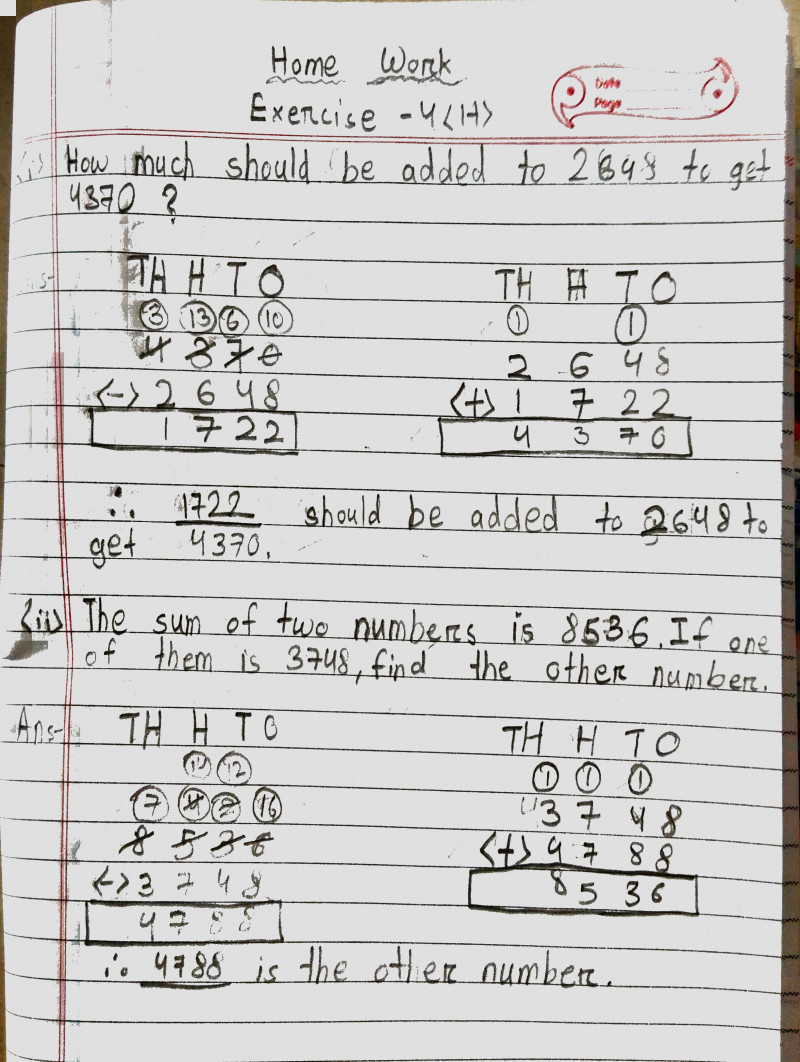 Home Work
Date
Page
Exercise - 4(H)
(i) How much should be added to 2648 to get
4370 ?
TH H T O
3 13 6 10
4 3 7 0
(-) 2 6 4 8
1 7 2 2
TH H T O
1 1
2 6 4 8
(+) 1 7 2 2
4 3 7 0
∴ 1722 should be added to 2648 to
get 4370.
(ii) The sum of two numbers is 8536. If one
of them is 3748, find the other number.
Ans- TH H T O
14 12
7 4 2 16
8 5 3 6
(-) 3 7 4 8
4 7 8 8
TH H T O
1 1 1
3 7 4 8
(+) 4 7 8 8
8 5 3 6
∴ 4788 is the other number.